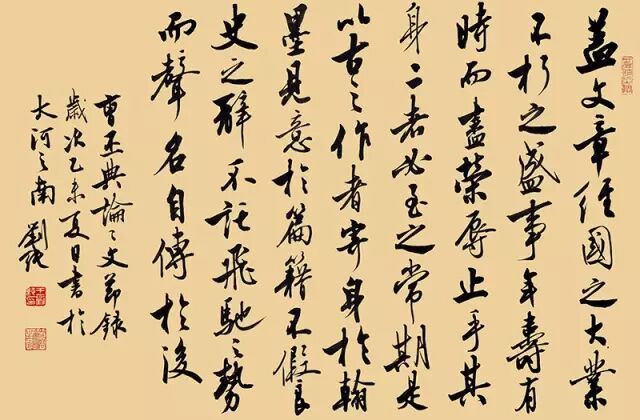 盖文章經國之大業
不朽之盛事年壽有
時而盡榮辱止乎其
身二者必至之常期是
以古之作者寄身於翰
墨見意於篇籍不假良
史之辭不託飛馳之勢
而聲名自傳於後
曹丕典論〻文節錄
歲次乙未夏日書於
大河之南 劉